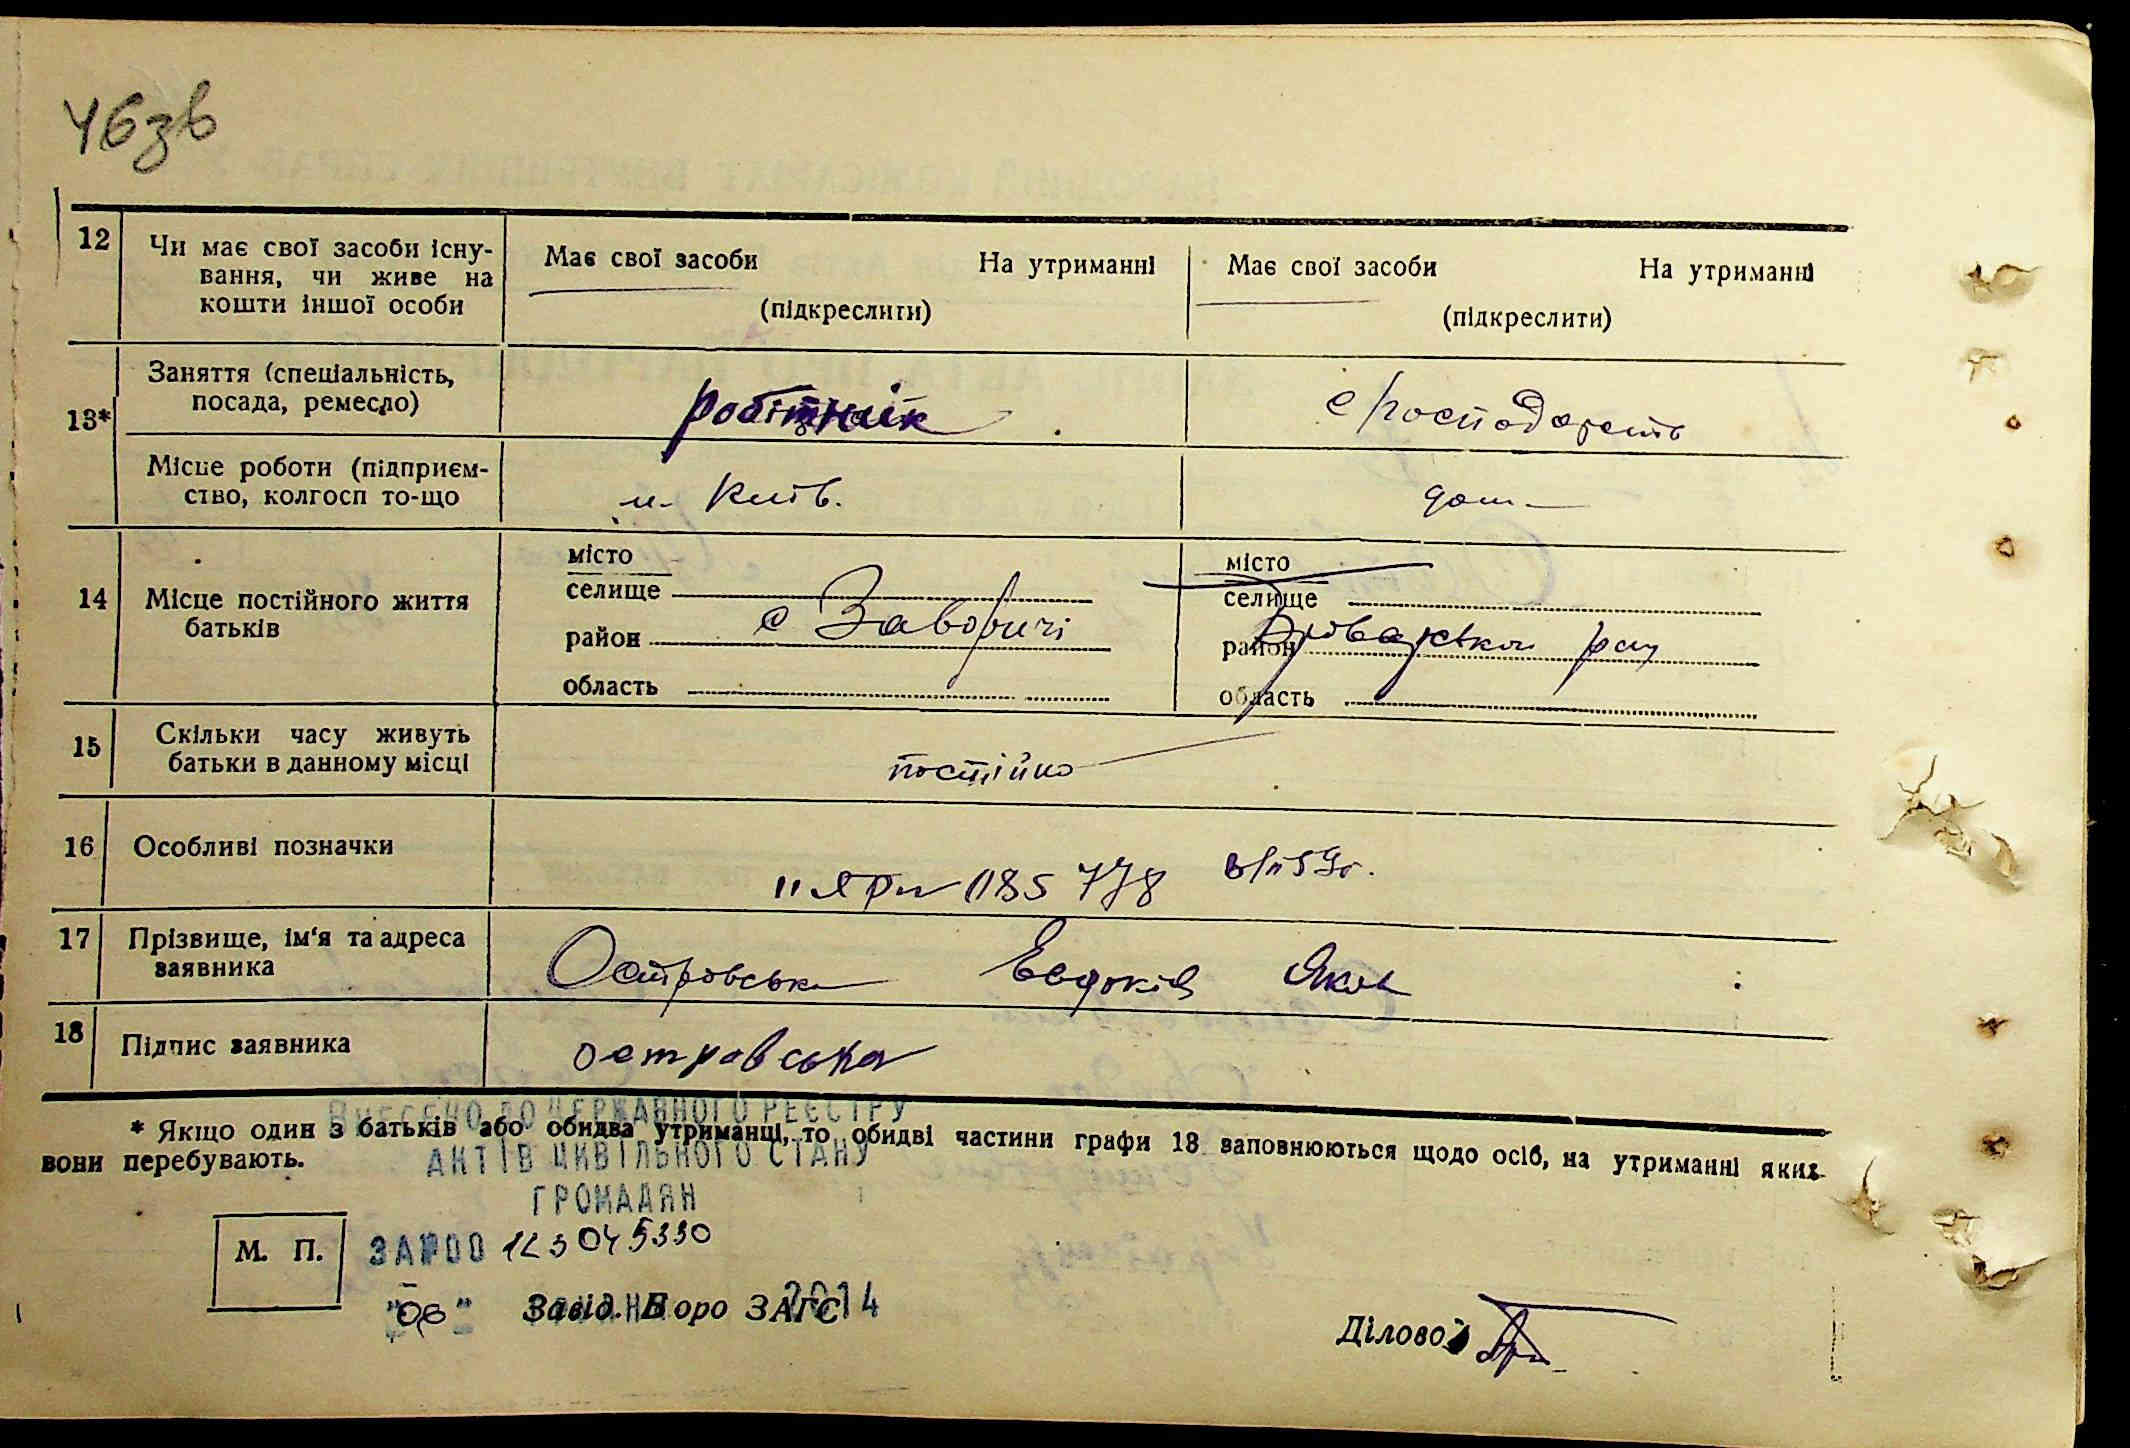 46зв
12
Чи має свої засоби існу-
вання, чи живе на
кошти іншої особи
Має свої засоби На утриманні
(підкреслити)
Має свої засоби На утриманні
(підкреслити)
13*
Заняття (спеціальність,
посада, ремесло)
робітник
Місце роботи (підприєм-
ство, колгосп то-що
м. Київ.
дом
14
Місце постійного життя
батьків
місто
селище
район с Заворичі
область
місто
селище
район Броварськой рну
область
15
Скільки часу живуть
батьки в данному місці
постійно
16
Особливі позначки
185 778 59г.
17
Прізвище, ім'я та адреса
заявника
Островська Евдокія Яков
18
Підпис заявника
островська
ВНЕСЕНО ДО ДЕРЖАВНОГО РЕЄСТРУ
АКТІВ ЦИВІЛЬНОГО СТАНУ
ГРОМАДЯН
* Якщо один з батьків або обидва утриманці, то обидві частини графи 18 заповнюються щодо осіб, на утриманні яких
вони перебувають.
М. П.
"06" 2014
Завід. Бюро ЗАГС
Діловод